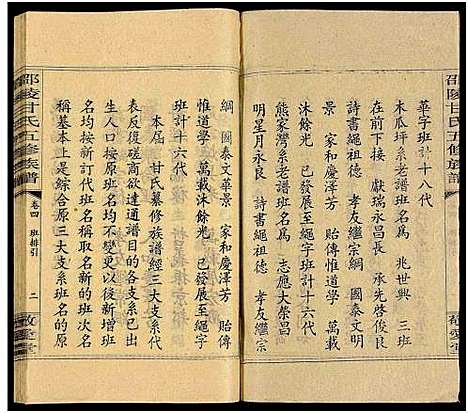 邵陵甘氏五修族譜
敬愛堂
華字班計十八代
木瓜坪系老譜班名爲 兆世興 三班
在前下接 獻瑞永昌長 承先啓俊良
詩書繩祖德 孝友繼宗綱 國泰文明
景 家和慶澤芳 貽傳惟道學 萬載
沐餘光 已發展至繩字班計十六代
熊家灣系老譜班名爲 志應大榮昌
明星月永良 詩書繩祖德 孝友繼宗
綱 國泰文華景 家和慶澤芳 貽傳
惟道學 萬載沐餘光 已發展至繩字
班計十六代
本屆 甘氏纂修族譜經三大支系代
表反復磋商欲達通譜目的各支系已出
生人口按原班名均不變更以後新增班
名均按新訂代班名相累的新的班次名
稱基本上是綜合原三大支系班名的原
邵陵甘氏五修族譜
卷四 班排引
二
敬愛堂